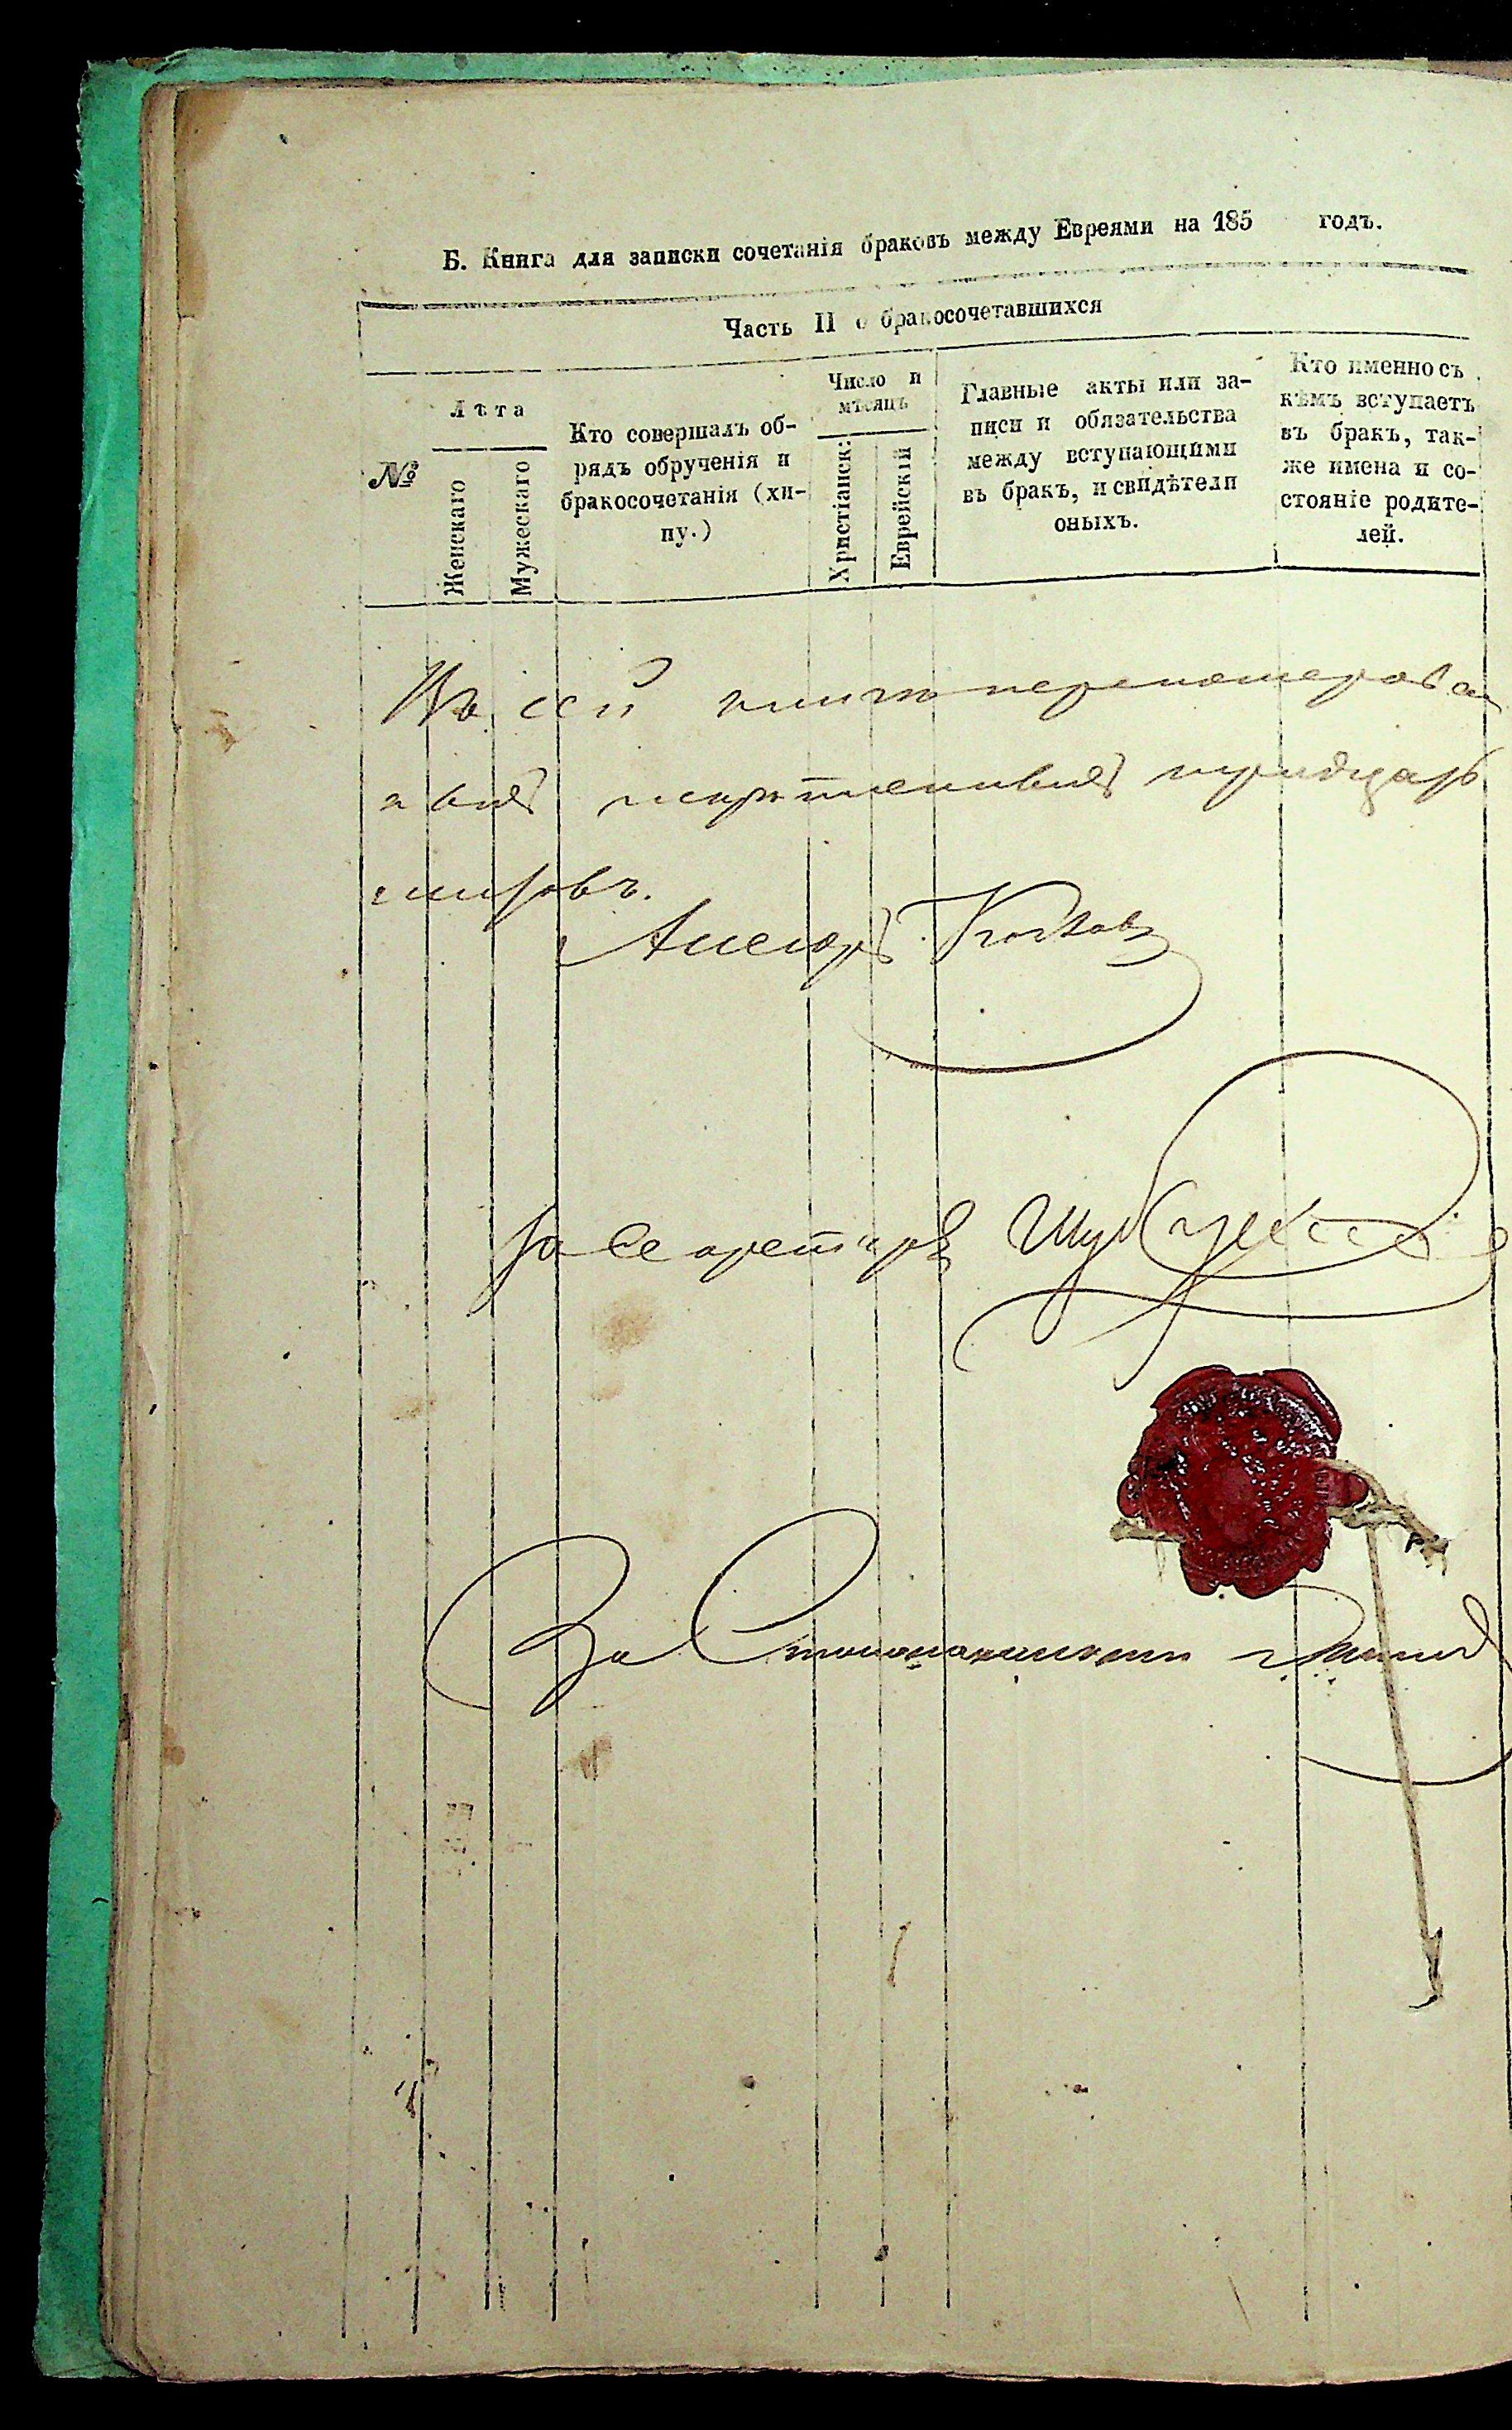 Б. Книга для записки сочетанія браковъ между Евреями на 185 годъ.
Часть II о бракосочетавшихся
№
Лѣта
Женскаго
Мужескаго
Кто совершалъ об-
рядъ обрученія и
бракосочетанія (хи-
пу.)
Число и
мѣсяцъ
Христіанск:
Еврейскій
Главные акты или за-
писи и обязательства
между вступающими
въ бракъ, и свидѣтели
оныхъ.
Кто именно съ
кѣмъ вступаетъ
въ бракъ, так-
же имена и со-
стояніе родите-
лей.
Въ сей книгѣ перенумерова
тридцать
листовъ.
За Секретаря
За Столоначальника